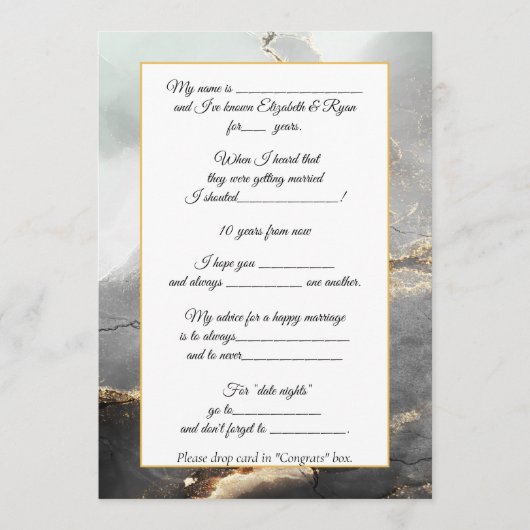 My name is ____________________
and I've known Elizabeth & Ryan
for____ years.
When I heard that
they were getting married
I shouted________________!
10 years from now
I hope you ____________
and always ____________ one another.
My advice for a happy marriage
is to always__________________
and to never_________________
For "date nights"
go to______________
and don't forget to ____________.
Please drop card in "Congrats" box.